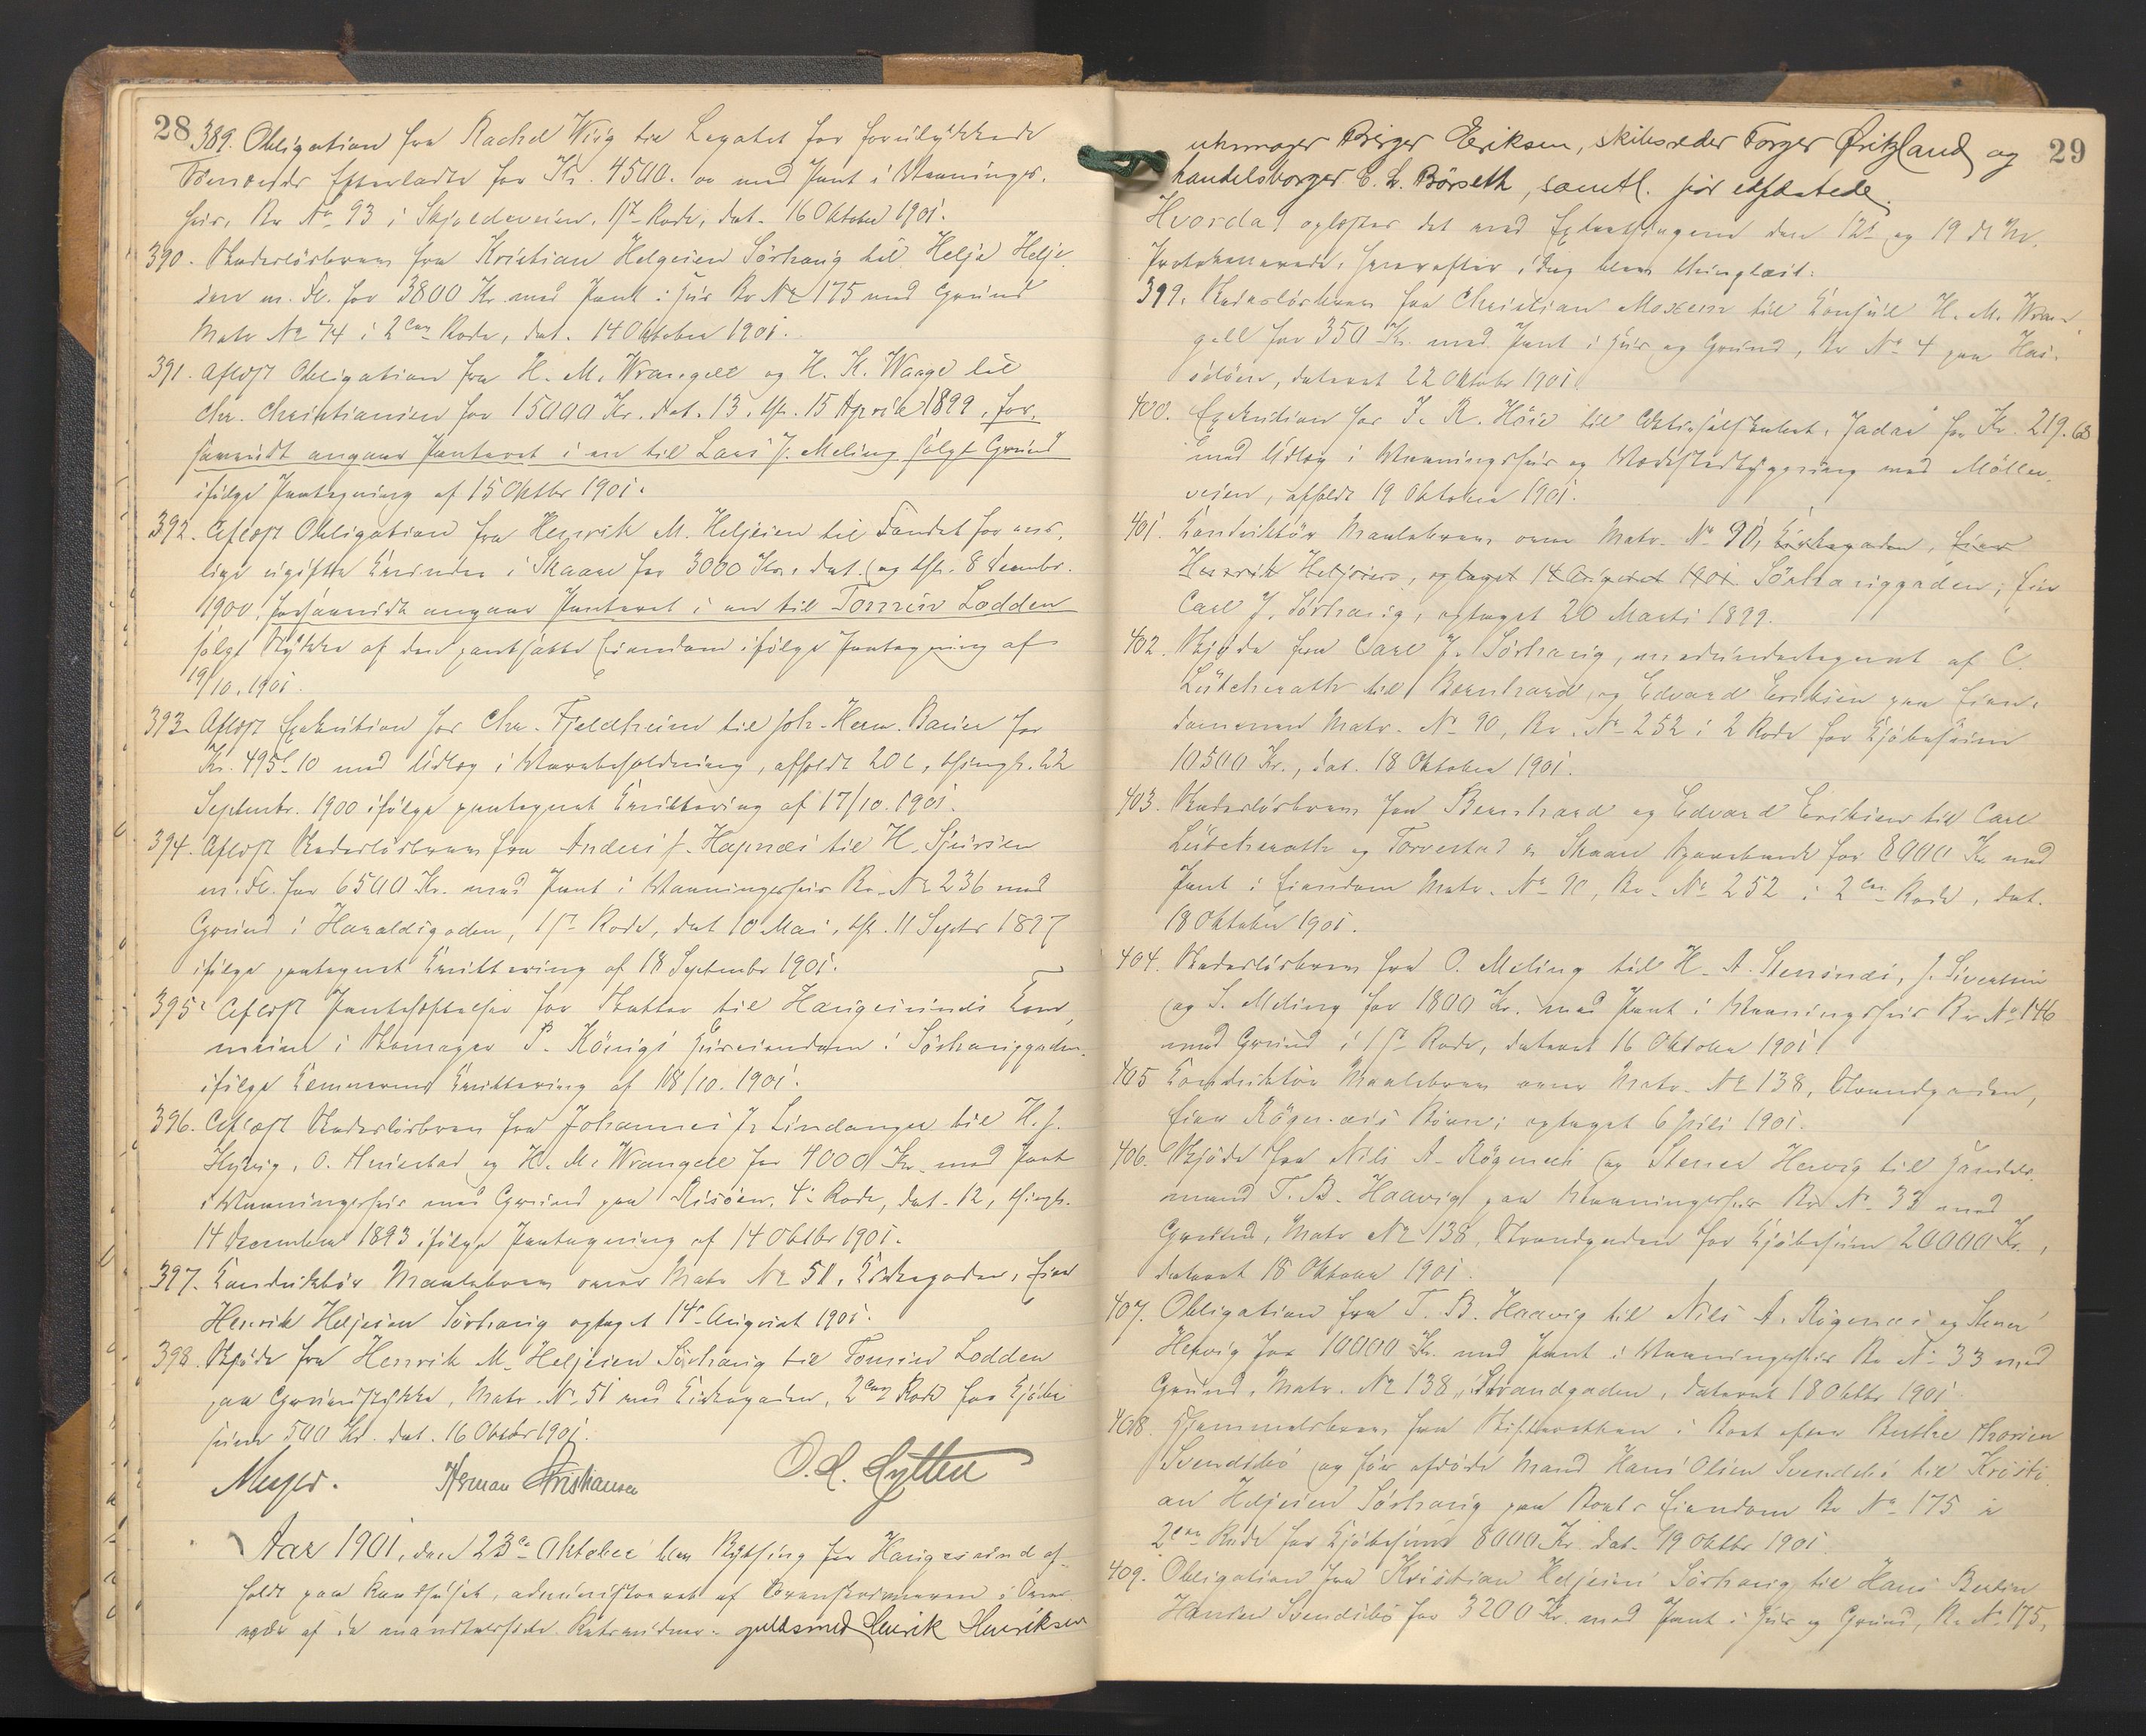 28
389. Obligation fra Rachel Wiig til Legatet for forulykkede
Sømænds Efterladte for Kr. 4500.00 med Pant i Vaanings-
hus, Br No 93 i Skjoldeveien, 1ste Rode, dat. 16 Oktober 1901.
390. Skadesløsbrev fra Kristian Helgesen Sørhaug til Helje Helje-
sen m. Fl. for 3800 Kr. med Pant i Hus Br No 175 med Grund
Matr No 74 i 2den Rode, dat. 14 Oktober 1901.
391. Aflyst Obligation fra H. M. Wrangell og H. K. Waage til
Chr. Christiansen for 15000 Kr. dat. 13, thl. 15 April 1899, for-
saavidt angaar Panteret i en til Lars J. Meling solgt Grund
ifølge Paategning af 15 Oktbr 1901.
392. Aflyst Obligation fra Henrik M. Heljesen til Fondet for
ugifte Kvinder i Skaare for 3000 Kr. dat. og thl. 8 Decembr.
1900, forsaavidt angaar Panteret i en til Tønnes Lodden
solgt Stykke af den pantsatte Eiendom ifølge Paategning af
19/10. 1901.
393. Aflyst Exekution for Chr. Fjeldheim til Joh. Herm. Bauer for
Kr. 495.10 med Udlæg i Varebeholdning, afholdt 20, thingl. 22
Septembr. 1900 ifølge paategnet Kvittering af 17/10. 1901.
394. Aflyst Skadesløsbrev fra Anders J. Hapnæs til H. Sjursen
m. Fl. for 6500 Kr. med Pant i Vaaningshus Br. No 236 med
Grund i Haraldsgaden, 1ste Rode, dat 10 Mai, thl. 11 Septr 1897
ifølge paategnet Kvittering af 18 Septembr 1901.
395. Aflyst Panteheftelse for Skatter til Haugesunds Kom-
mune i Skomager P. Königs Huseiendom i Sørhauggaden
ifølge Kemnerens Kvittering af 18/10. 1901.
396. Aflyst Skadesløsbrev fra Johannes J. Lindanger til H. J.
O. og H. M. Wrangell for 4000 Kr. med Pant
i Vaaningshus med Grund paa Risøen, 4de Rode, dat. 12, thingl.
14 December 1893 ifølge Paategning af 14 Oktbr 1901.
397. Konduktør Maalebrev over Matr No 51, Kirkegaden, Eier
Henrik Heljesen Sørhaug optaget 14de August 1901.
398. Skjøde fra Henrik M. Heljesen Sørhaug til Tønnes Lodden
paa Grundstykke, Matr. No 51 ved Kirkegaden, 2den Rode for Kjøbe-
sum 500 Kr. dat. 16 Oktbr 1901.
Meyer. Herman Christiansen O. L. Lytten
Aar 1901, den 23de Oktober blev Bything for Haugesund af-
holdt paa Raadhuset, administreret af i Over-
vær af de Retsvidner: guldsmed Henrik Henriksen
29
uhrmager Birger Eriksen, skibsreder Torger Øritzland og
handelsborger C. L. Børseth, samtl. før edfæstede.
Hvorda oplæstes det ved Extrathingene den 12te og 19 ds Mr.
Protokollerede, hvorefter idag blev thinglæst:
399. Skadesløsbrev fra Christian Moxem til Konsul H. M. Wran-
gell for 350 Kr. med Pant i Hus og Grund, Br No 4 paa Has-
seløen, dateret 22 Oktobr 1901.
400. Exekution for J. R. Höie til Aktieselskabet Jadar for Kr. 219.68
med Udlæg i Vaaningshus og Værkstedbygning ved Møller-
veien, afholdt 19 Oktober 1901.
401. Konduktør Maalebrev over Matr. No 90, Kirkegaden, Eier
Henrik Heljesens, optaget 14 August 1901 Sørhauggaden, Eier
Carl J. Sørhaug, optaget 20 Marts 1899.
402. Skjøde fra Carl J. Sørhaug, medundertegnet af C.
Lütcherath til Bernhard og Edvard Eriksen paa Eien-
dommen Matr. No 90, Br. No 252 i 2 Rode for Kjøbesum
10500 Kr., dat. 18 Oktober 1901.
403. Skadesløsbrev fra Bernhard og Edvard Eriksen til Carl
Lütcherath og Torvestad & Skaare Sparebank for 8000 Kr. med
Pant i Eiendom Matr. No 90, Br. No 252 i 2den Rode, dat.
18 Oktober 1901.
404. Skadesløsbrev fra O. Meling til H. A. Stensnæs, J. Sivertsen
og S. Meling for 1800 Kr. med Pant i Vaaningshus Br No 146
med Grund i 1ste Rode, dateret 16 Oktober 1901.
405 Konduktør Maalebrev over Matr. No 138, Strandgaden,
Eier Røgenæs's Børn; optaget 6 Juli 1901.
406. Skjøde fra Nils A. Røgenæs og Stener Hervig til Handels-
mand T. B. Haavig paa Vaaningshus Br No 33 med
Grund, Matr No 138, Strandgaden for Kjøbesum 20000 Kr.,
dateret 18 Oktober 1901.
407. Obligation fra T. B. Haavig til Nils A. Røgenæs og Stener
Hervig for 10000 Kr. med Pant i Vaaningshus Br No 33 med
Grund, Matr. No 138, Strandgaden, dateret 18 Oktbr 1901.
408. Hjemmelsbrev fra Skifteretten i Boet efter Berthe Thorsen
Svendsbö og før afdøde Mand Hans Olsen Svendsbö til Kristi-
an Heljesen Sørhaug paa Boets Eiendom Br No 175 i
2den Rode for Kjøbesum 8000 Kr. dat. 19 Oktbr 1901.
409. Obligation fra Kristian Heljesen Sørhaug til Hans Bertin
Hansen Svendsbö for 3200 Kr. med Pant i Hus og Grund, Br No 175,